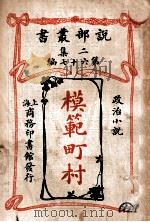 說部叢書
二集
第六十七編
政治小說
模範町村
上海商務印書館發行